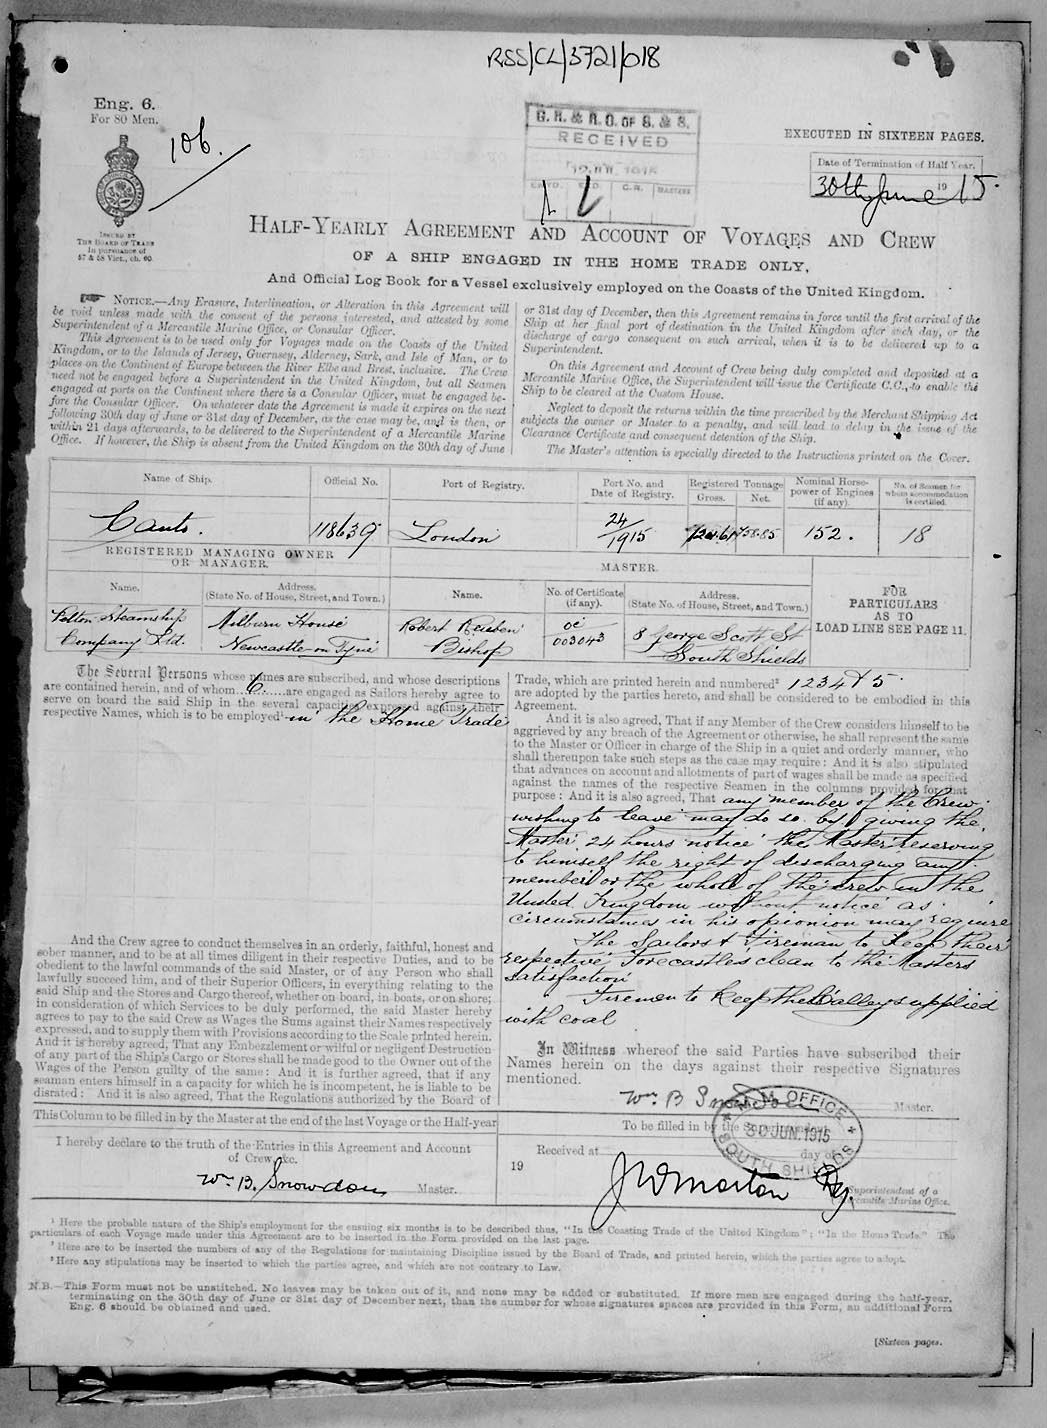 RSS/CL/3721/018
Eng. 6.
For 80 Men.
106.
ISSUED BY
THE BOARD OF TRADE
in pursuance of
57 & 58 Vict., ch. 60.
G. R. & R. O. OF S. & S.
RECEIVED
C.R. MASTERS
EXECUTED IN SIXTEEN PAGES.
Date of Termination of Half Year.
30th June 1915.
HALF-YEARLY AGREEMENT AND ACCOUNT OF VOYAGES AND CREW
OF A SHIP ENGAGED IN THE HOME TRADE ONLY,
And Official Log Book for a Vessel exclusively employed on the Coasts of the United Kingdom.
NOTICE.—Any Erasure, Interlineation, or Alteration in this Agreement will
be void unless made with the consent of the persons interested, and attested by some
Superintendent of a Mercantile Marine Office, or Consular Officer.
This Agreement is to be used only for Voyages made on the Coasts of the United
Kingdom, or to the Islands of Jersey, Guernsey, Alderney, Sark, and Isle of Man, or to
places on the Continent of Europe between the River Elbe and Brest, inclusive. The Crew
need not be engaged before a Superintendent in the United Kingdom, but all Seamen
engaged at ports on the Continent where there is a Consular Officer, must be engaged be-
fore the Consular Officer. On whatever date the Agreement is made it expires on the next
following 30th day of June or 31st day of December, as the case may be, and is then, or
within 21 days afterwards, to be delivered to the Superintendent of a Mercantile Marine
Office. If however, the Ship is absent from the United Kingdom on the 30th day of June
or 31st day of December, then this Agreement remains in force until the first arrival of the
Ship at her final port of destination in the United Kingdom after such day, or the
discharge of cargo consequent on such arrival, when it is to be delivered up to a
Superintendent.
On this Agreement and Account of Crew being duly completed and deposited at a
Mercantile Marine Office, the Superintendent will issue the Certificate C.C., to enable the
Ship to be cleared at the Custom House.
Neglect to deposit the returns within the time prescribed by the Merchant Shipping Act
subjects the owner or Master to a penalty, and will lead to delay in the issue of the
Clearance Certificate and consequent detention of the Ship.
The Master's attention is specially directed to the Instructions printed on the Cover.
Name of Ship. Official No. Port of Registry. Port No. and Date of Registry. Registered Tonnage Gross. Net. Nominal Horse-power of Engines (if any). No. of Seamen for whom accommodation is certified.
Canto. 118639 London 24/1915 758.85 152. 18
REGISTERED MANAGING OWNER
OR MANAGER.
MASTER.
Name. Address. (State No. of House, Street, and Town.) Name. No. of Certificate (if any). Address. (State No. of House, Street, and Town.)
FOR
PARTICULARS
AS TO
LOAD LINE SEE PAGE 11.
Pelton Steamship Milburn House Robert Reuben OC 8 George Scott St
Company Ltd. Newcastle on Tyne Bishop 003043 South Shields
The Several Persons whose names are subscribed, and whose descriptions
are contained herein, and of whom 6 are engaged as Sailors hereby agree to
serve on board the said Ship in the several capacities expressed against their
respective Names, which is to be employed¹ in the Home Trade
And the Crew agree to conduct themselves in an orderly, faithful, honest and
sober manner, and to be at all times diligent in their respective Duties, and to be
obedient to the lawful commands of the said Master, or of any Person who shall
lawfully succeed him, and of their Superior Officers, in everything relating to the
said Ship and the Stores and Cargo thereof, whether on board, in boats, or on shore;
in consideration of which Services to be duly performed, the said Master hereby
agrees to pay to the said Crew as Wages the Sums against their Names respectively
expressed, and to supply them with Provisions according to the Scale printed herein.
And it is hereby agreed, That any Embezzlement or wilful or negligent Destruction
of any part of the Ship's Cargo or Stores shall be made good to the Owner out of the
Wages of the Person guilty of the same: And it is further agreed, that if any
seaman enters himself in a capacity for which he is incompetent, he is liable to be
disrated: And it is also agreed, That the Regulations authorized by the Board of
Trade, which are printed herein and numbered² 1 2 3 4 & 5.
are adopted by the parties hereto, and shall be considered to be embodied in this
Agreement.
And it is also agreed, That if any Member of the Crew considers himself to be
aggrieved by any breach of the Agreement or otherwise, he shall represent the same
to the Master or Officer in charge of the Ship in a quiet and orderly manner, who
shall thereupon take such steps as the case may require: And it is also stipulated
that advances on account and allotments of part of wages shall be made as specified
against the names of the respective Seamen in the columns provided for that
purpose: And it is also agreed, That any member of the Crew
wishing to leave may do so by giving the
Master 24 hours notice the Master reserving
to himself the right of discharging any
member or the whole of the crew in the
United Kingdom without notice as
circumstances in his opionion may require
The Sailors & Fireman to Keep their
respective Forecastles clean to the Masters
Satisfaction
Firemen to Keep the Galley supplied
with coal
In Witness whereof the said Parties have subscribed their
Names herein on the days against their respective Signatures
mentioned.
Wm B Snowdon Master.
This Column to be filled in by the Master at the end of the last Voyage or the Half-year
I hereby declare to the truth of the Entries in this Agreement and Account
of Crew, &c.
Wm B. Snowdon Master.
To be filled in by the Superintendent
Received at day of
19
M. M. OFFICE
30 JUN. 1915
SOUTH SHIELDS
J W Morton Dy.
Superintendent of a
Mercantile Marine Office.
¹ Here the probable nature of the Ship's employment for the ensuing six months is to be described thus, "In the Coasting Trade of the United Kingdom"; "In the Home Trade." The
particulars of each Voyage made under this Agreement are to be inserted in the Form provided on the last page.
² Here are to be inserted the numbers of any of the Regulations for maintaining Discipline issued by the Board of Trade, and printed herein, which the parties agree to adopt.
³ Here any stipulations may be inserted to which the parties agree, and which are not contrary to Law.
N.B.—This Form must not be unstitched. No leaves may be taken out of it, and none may be added or substituted. If more men are engaged during the half-year,
terminating on the 30th day of June or 31st day of December next, than the number for whose signatures spaces are provided in this Form, an additional Form
Eng. 6 should be obtained and used.
[Sixteen pages.